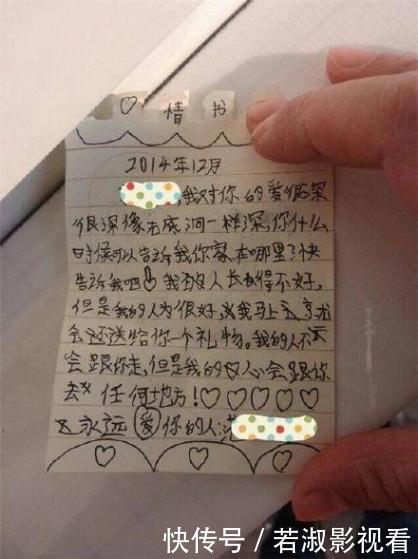 ♡ 情书
2014年12月
我对你的爱很深
很深像无底洞一样深，你什么
时候可以告诉我你家在哪里？快
告诉我吧！我人长得不好，
但是我的人为很好，我马上
会送给你一个礼物。我的人不
会跟你走，但是我的心会跟你
去任何地方！♡♡♡♡♡
永远爱你的人：
快传号/若淑影视看